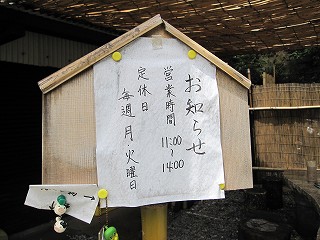 お知らせ
営業時間
11:00
〜
14:00
定休日
毎週月・火曜日